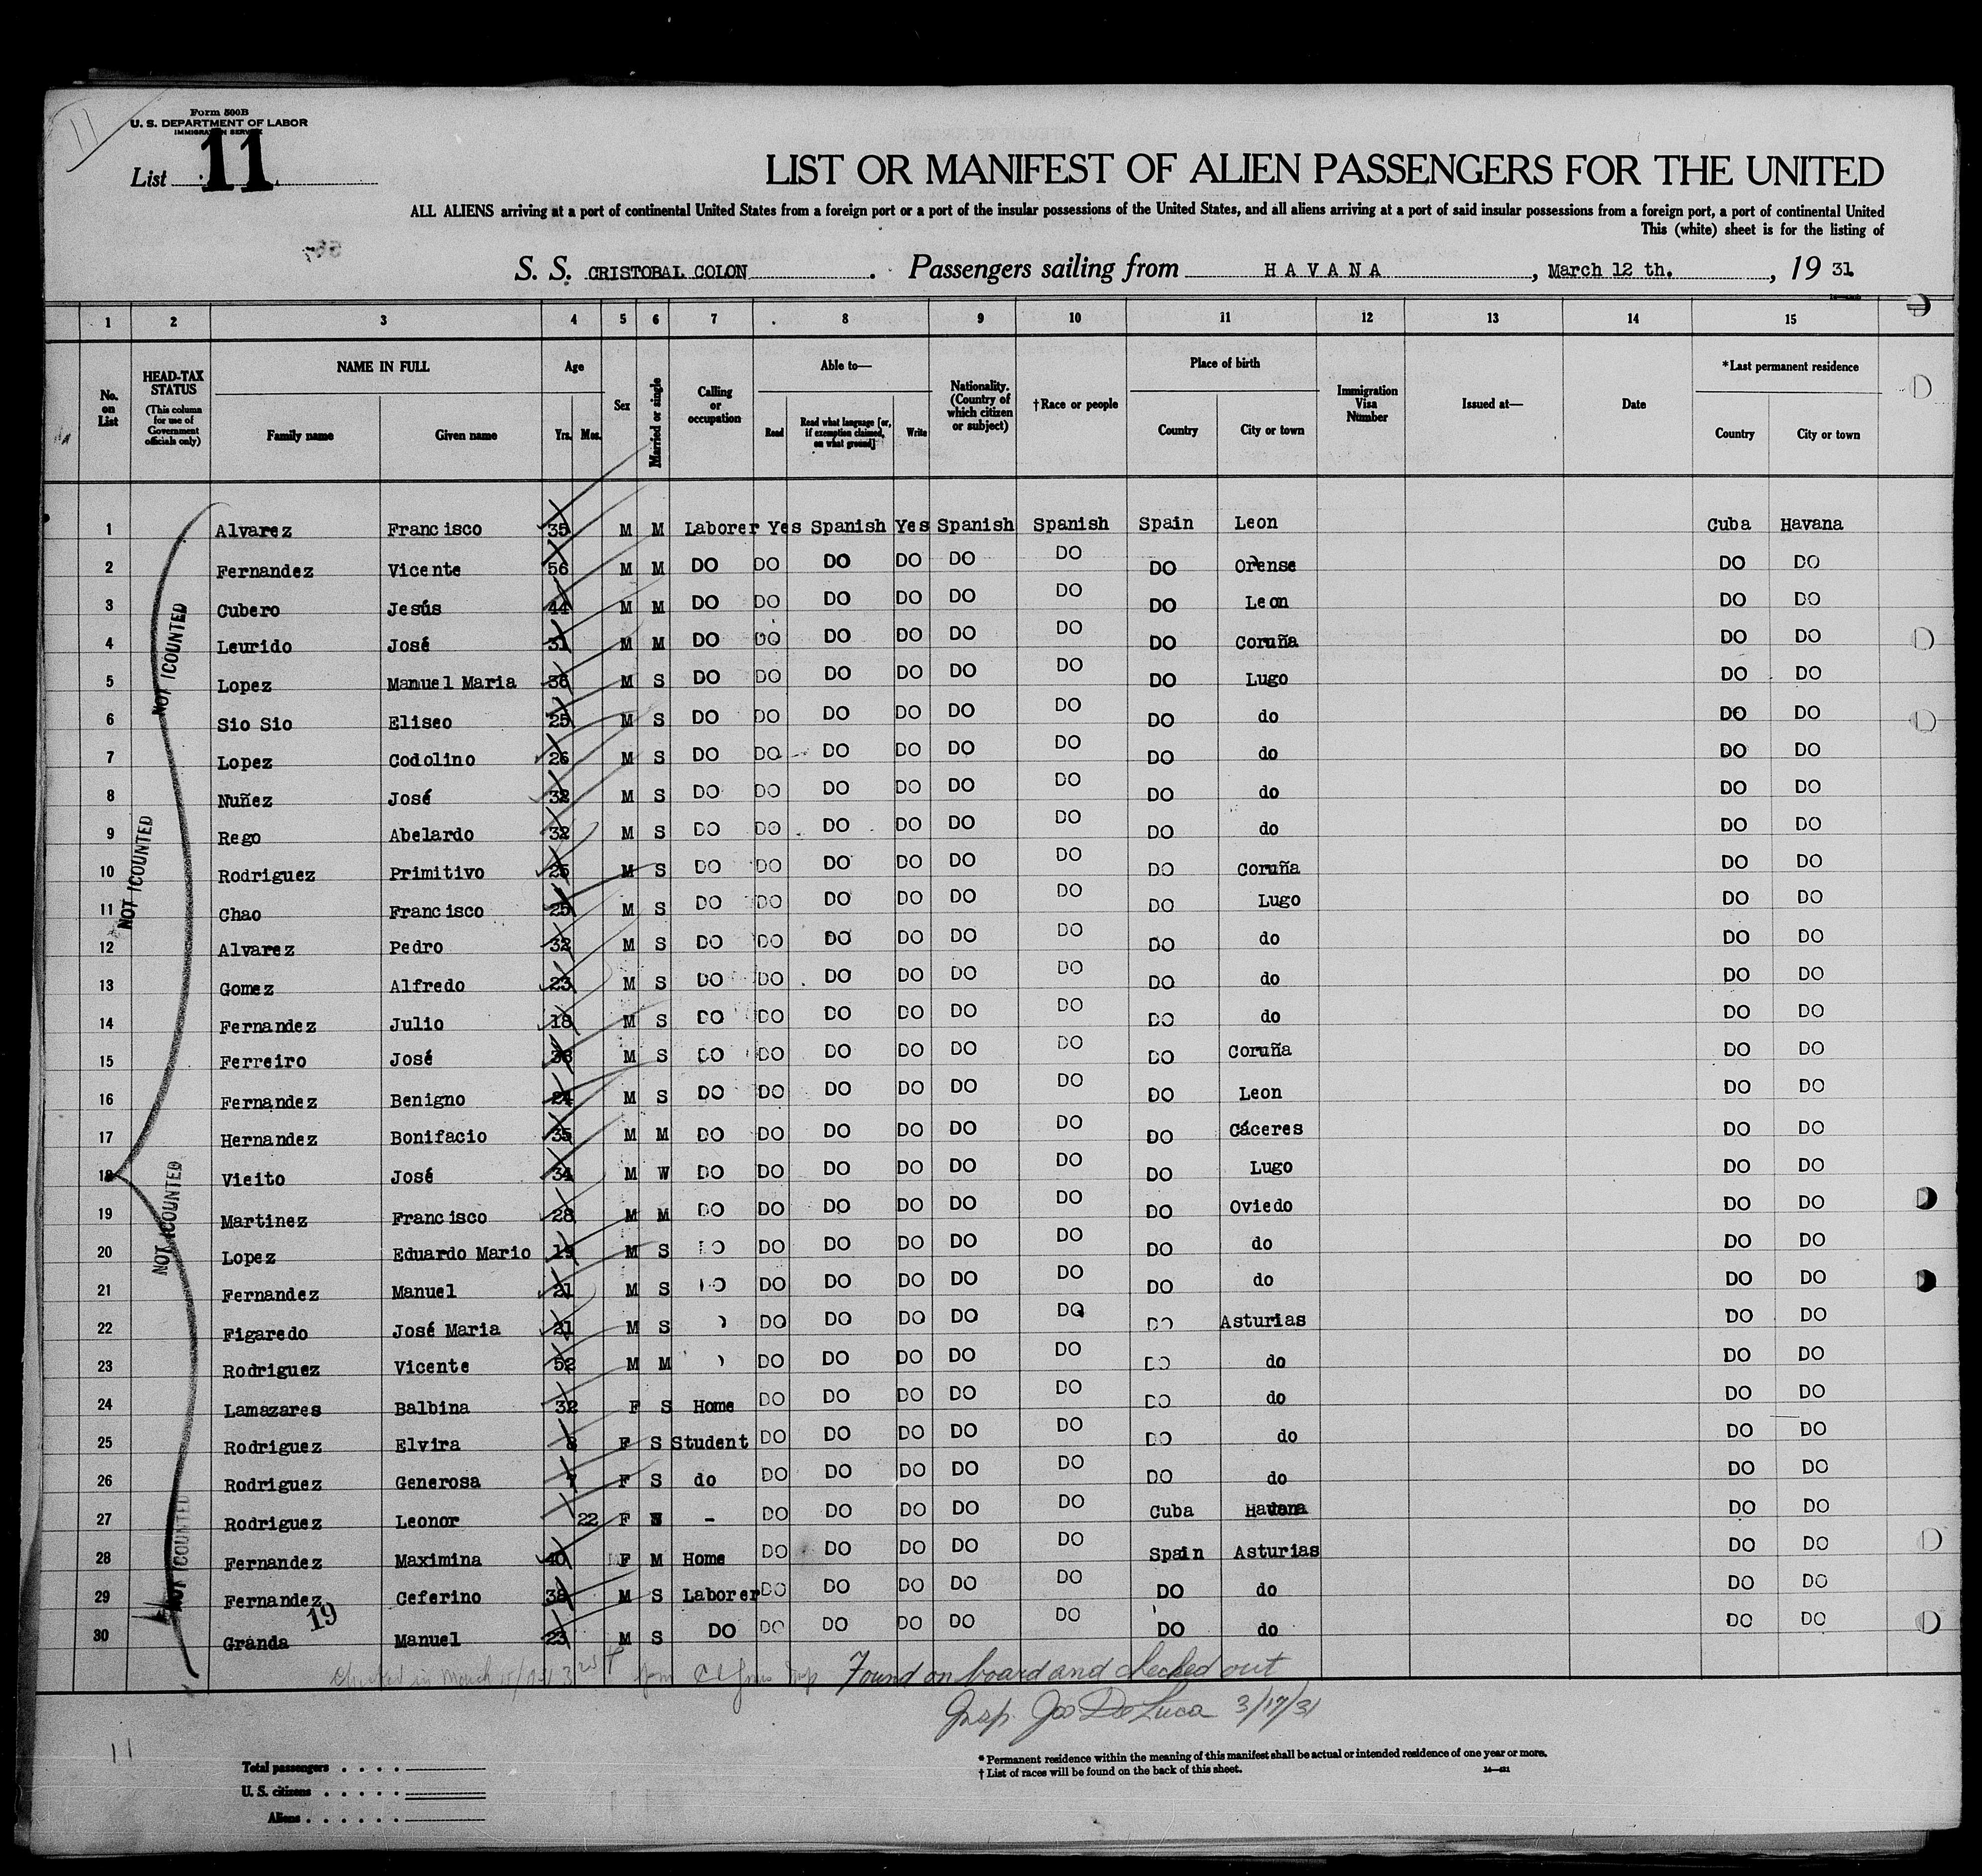 11
Form 500B
U. S. DEPARTMENT OF LABOR
IMMIGRATION SERVICE
List 11
LIST OR MANIFEST OF ALIEN PASSENGERS FOR THE UNITED
ALL ALIENS arriving at a port of continental United States from a foreign port or a port of the insular possessions of the United States, and all aliens arriving at a port of said insular possessions from a foreign port, a port of continental United
This (white) sheet is for the listing of
S. S. CRISTOBAL COLON. Passengers sailing from HAVANA, March 12 th., 19 31
1 2 3 4 5 6 7 8 9 10 11 12 13 14 15
No. on List HEAD-TAX STATUS (This column for use of Government officials only) NAME IN FULL Family name Given name Age Yrs. Mos. Sex Married or single Calling or occupation Able to— Read Read what language [or, if exemption claimed, on what ground] Write Nationality. (Country of which citizen or subject) †Race or people Place of birth Country City or town Immigration Visa Number Issued at— Date *Last permanent residence Country City or town
1 Alvarez Francisco 35 M M Laborer Yes Spanish Yes Spanish Spanish Spain Leon Cuba Havana
2 Fernandez Vicente 56 M M DO DO DO DO DO DO DO Orense DO DO
3 Cubero Jesús 44 M M DO DO DO DO DO DO DO Leon DO DO
4 Leurido José 31 M M DO DO DO DO DO DO DO Coruña DO DO
5 Lopez Manuel Maria 36 M S DO DO DO DO DO DO DO Lugo DO DO
6 Sio Sio Eliseo 25 M S DO DO DO DO DO DO DO do DO DO
7 Lopez Codolino 26 M S DO DO DO DO DO DO DO do DO DO
8 Nuñez José 32 M S DO DO DO DO DO DO DO do DO DO
9 Rego Abelardo 32 M S DO DO DO DO DO DO DO do DO DO
10 Rodriguez Primitivo 25 M S DO DO DO DO DO DO DO Coruña DO DO
11 Chao Francisco 25 M S DO DO DO DO DO DO DO Lugo DO DO
12 Alvarez Pedro 32 M S DO DO DO DO DO DO DO do DO DO
13 Gomez Alfredo 23 M S DO DO DO DO DO DO DO do DO DO
14 Fernandez Julio 18 M S DO DO DO DO DO DO DO do DO DO
15 Ferreiro José M S DO DO DO DO DO DO DO Coruña DO DO
16 Fernandez Benigno 24 M S DO DO DO DO DO DO DO Leon DO DO
17 Hernandez Bonifacio 35 M M DO DO DO DO DO DO DO Cáceres DO DO
18 Vieito José 34 M W DO DO DO DO DO DO DO Lugo DO DO
19 Martinez Francisco 28 M M DO DO DO DO DO DO DO Oviedo DO DO
20 Lopez Eduardo Mario 19 M S DO DO DO DO DO DO DO do DO DO
21 Fernandez Manuel 21 M S DO DO DO DO DO DO DO do DO DO
22 Figaredo José Maria 21 M S DO DO DO DO DO DO Asturias DO DO
23 Rodriguez Vicente 52 M M DO DO DO DO DO DO do DO DO
24 Lamazares Balbina 32 F S Home DO DO DO DO DO DO do DO DO
25 Rodriguez Elvira 8 F S Student DO DO DO DO DO DO do DO DO
26 Rodriguez Generosa 7 F S do DO DO DO DO DO DO do DO DO
27 Rodriguez Leonor 22 F S - DO DO DO DO DO Cuba Havana DO DO
28 Fernandez Maximina 40 F M Home DO DO DO DO DO Spain Asturias DO DO
29 Fernandez Ceferino 38 M S Laborer DO DO DO DO DO DO do DO DO
30 Granda Manuel 23 M S DO DO DO DO DO DO DO do DO DO
19
NOT COUNTED
NOT COUNTED
NOT COUNTED
NOT COUNTED
Checked in March Found on board and checked out
Insp. Jos De Luca 3/17/31
11
Total passengers
U. S. citizens
Aliens
* Permanent residence within the meaning of this manifest shall be actual or intended residence of one year or more.
† List of races will be found on the back of this sheet.